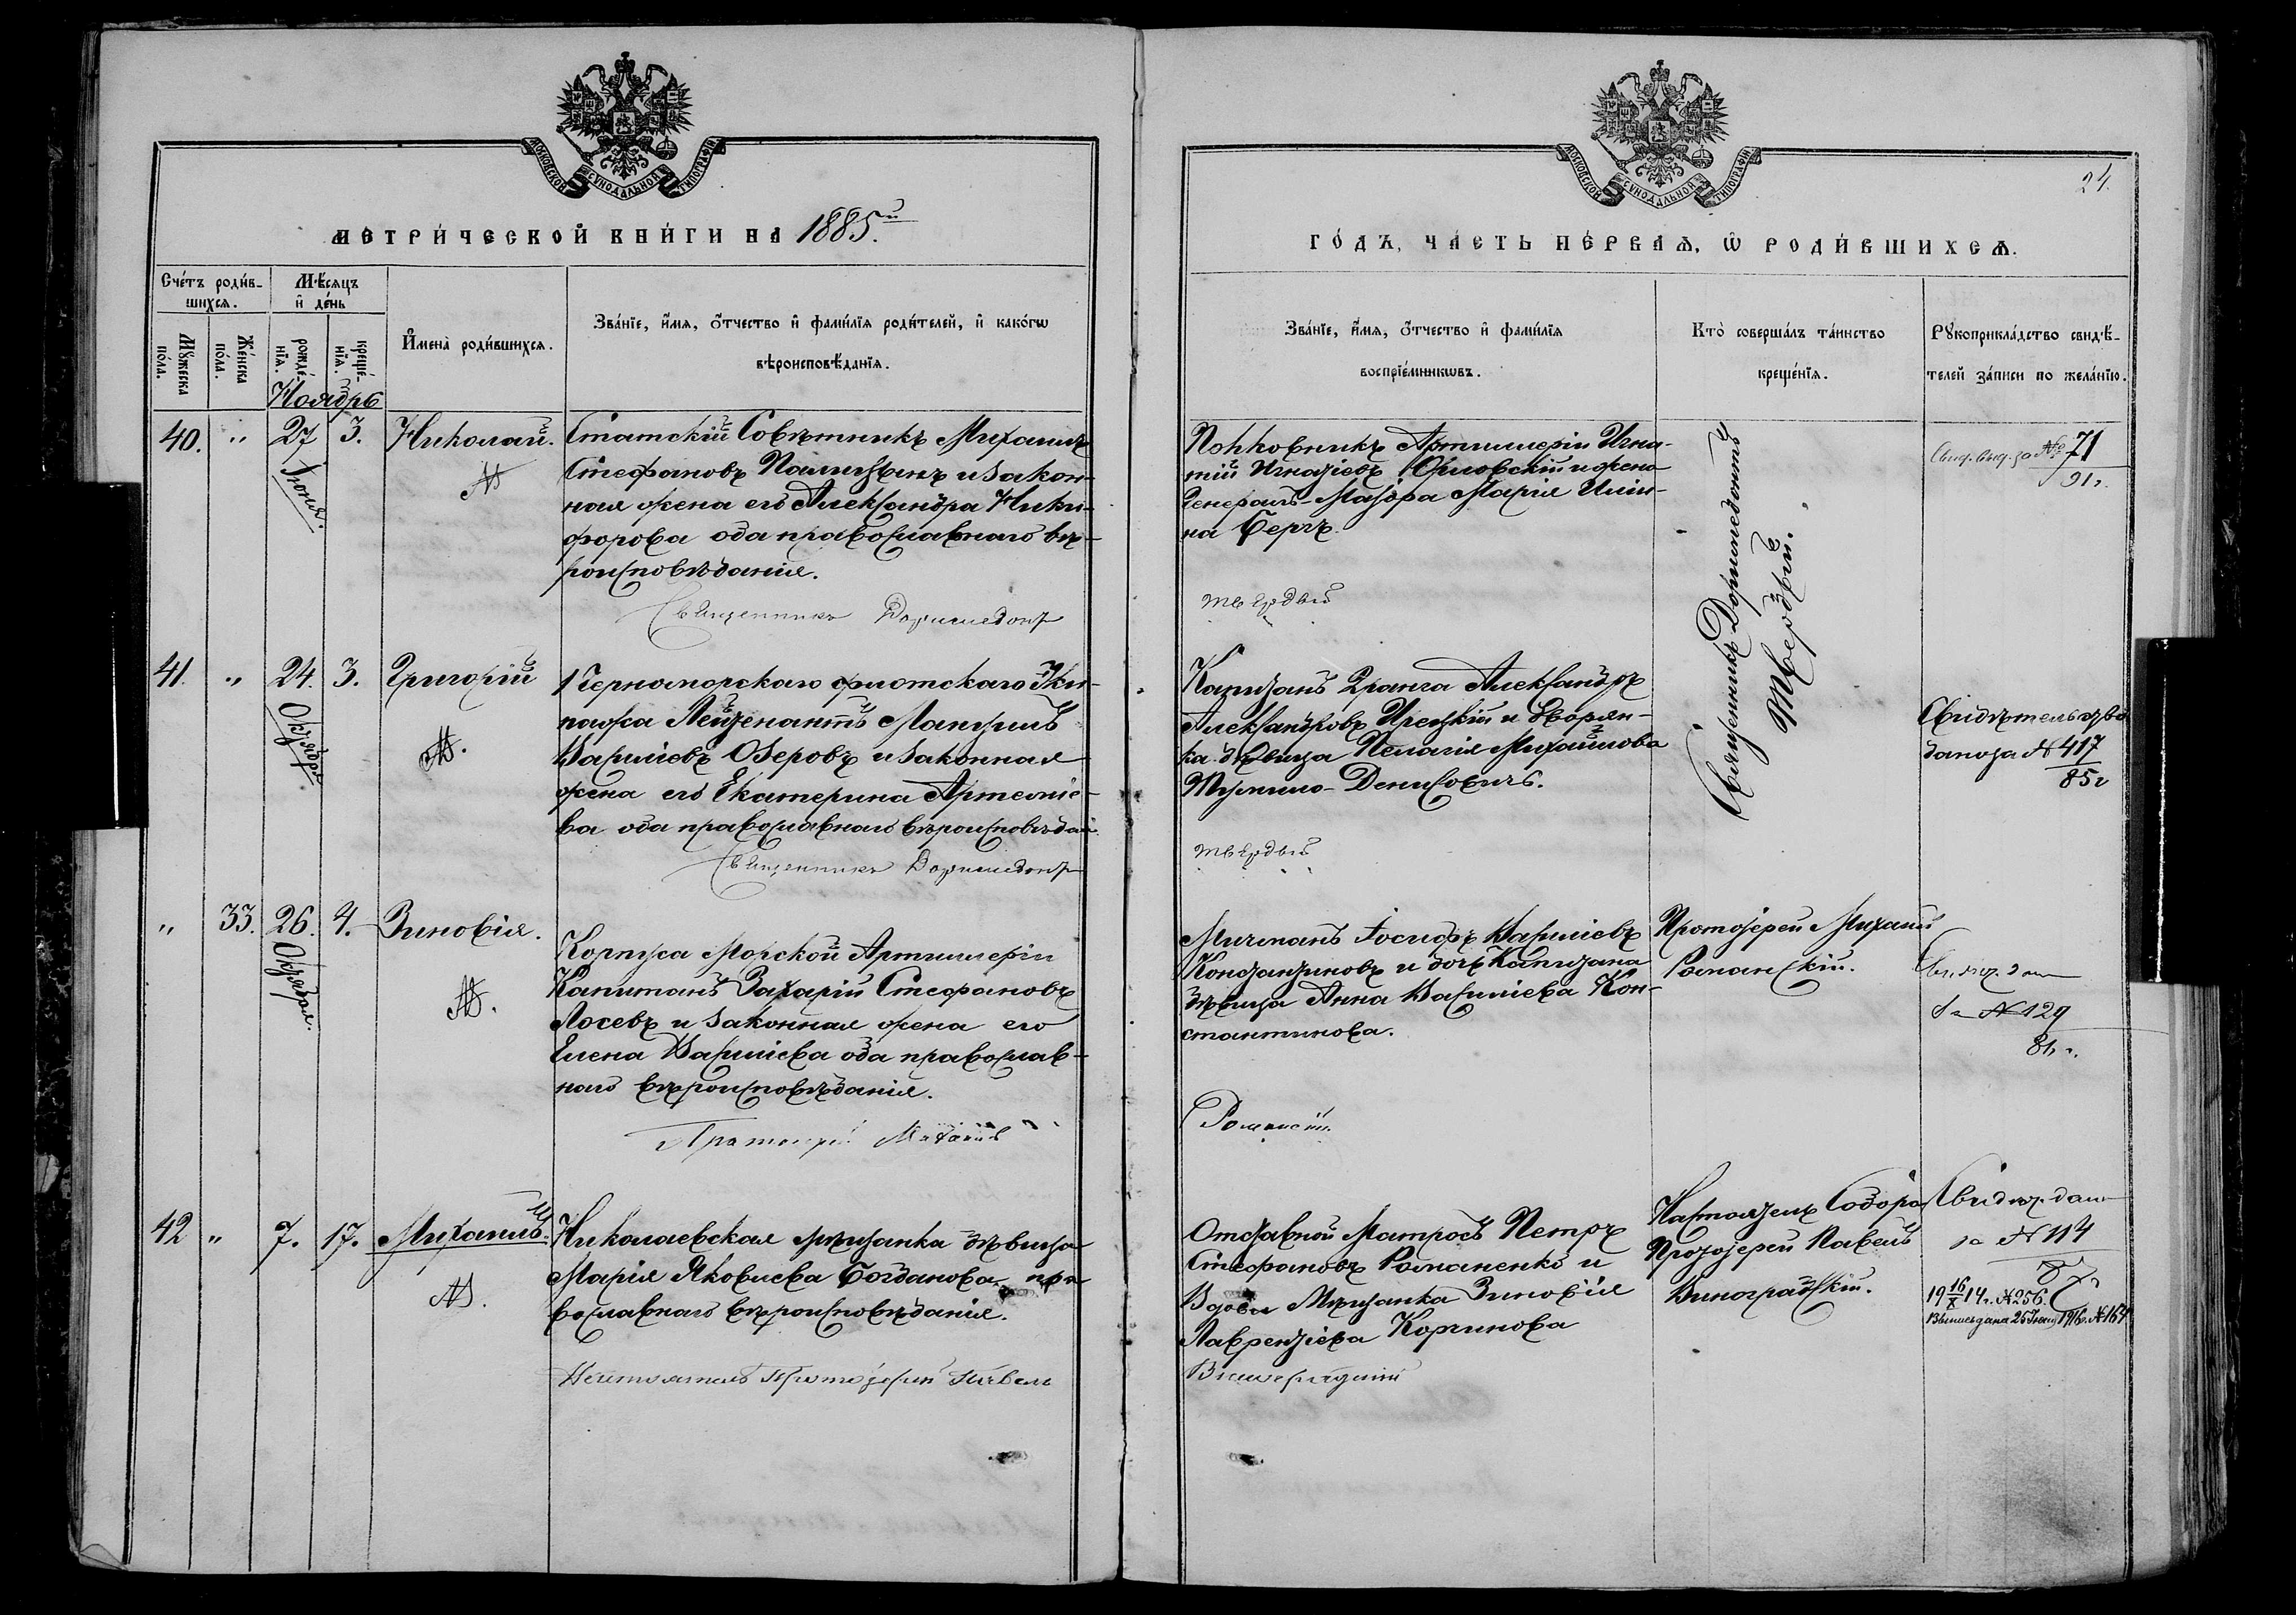 МОСКОВСКОЙ СУНОДАЛЬНОЙ ТИПОГРАФІИ
МЕТРИ́ЧЕСКОЙ КНИ́ГИ НА 1885.й
Сче́тъ роди́в-
шихсѧ.
Мѣ́сѧцъ
и҆ де́нь
Мꙋ́жеска по́ла.
Же́нска по́ла.
рожде́-
нїѧ.
креще́-
нїѧ.
И҆мена̀ роди́вшихсѧ.
Зва́нїе, и҆́мѧ, ѻ҆́тчество и҆ фами́лїѧ роди́телей, и҆ како́гѡ
вѣроисповѣ́данїѧ.
Ноябрь
40. " 27 Іюня. 3. Николай.
Статскій Совѣтникъ Михаилъ
Стефановъ Палицынъ и закон-
ная жена его Александра Ники-
форова оба православнаго вѣ-
роисповѣданія.
Священникъ Доримедонт
41. " 24. Октября 3. Григорій
1 Черноморскаго флотскаго Эки-
пажа Лейтенантъ Мануилъ
Василіевъ Озеровъ и законная
жена его Екатерина Артеміе-
ва оба православнаго вѣроисповѣдан.
Священникъ Доримедонт
" 33. 26. Октября. 4. Зиновія.
Корпуса Морской Артиллеріи
Капитанъ Захарій Стефановъ
Лосевъ и законная жена его
Елена Василіева оба православ-
наго вѣроисповѣданія.
Протоіерей Михаилъ
42 " 7. 17. Михаилъ.
Николаевская мѣщанка дѣвица
Марія Яковлева Богданова пра
вославнаго вѣроисповѣданія.
Настоятель Протоіерей Павелъ
МОСКОВСКОЙ СУНОДАЛЬНОЙ ТИПОГРАФІИ
24.
ГО́ДЪ, ЧА́СТЬ ПЕ́РВАѦ, Ѡ҆ РОДИ́ВШИХСѦ.
Зва́нїе, и҆́мѧ, ѻ҆́тчество и҆ фами́лїѧ
воспрїе́мникѡвъ.
Кто̀ соверша́лъ та́инство
креще́нїѧ.
Рꙋкоприкла́дство свидѣ́-
телей за́писи по жела́нїю.
Полковникъ Артиллеріи Игна-
тій Игнатіевъ Орловскій и жена
Генералъ-Маіора Марія Ильи-
на Бергъ.
твердый
Священникъ Доримедонтъ
Твердый.
Свид. выд. за № 71
91г.
Капитанъ 2 ранга Александръ
Александровъ Ирецкій и дворян-
ка дѣвица Пелагія Михайлова
Тумило-Денисовичъ.
твердый
Свидѣтельство
дано за № 417
85г
Мичманъ Іосифъ Василіевъ
Константиновъ и дочь Капитана
дѣвица Анна Василіева Кон-
стантинова.
Романскій
Протоіерей Михаилъ
Романскій.
Свидѣт. дан
за № 129
86 г.
Отставной Матросъ Петръ
Стефановъ Романенко и
Вдова Мѣщанка Зиновія
Лаврентіева Корчинова
Виноградскій
Настоятель Собора
Протоіерей Павелъ
Виноградскій.
Свидѣт. дан
за № 114
87 г
19 16/X 14 г. № 256.
1916 г. № 164